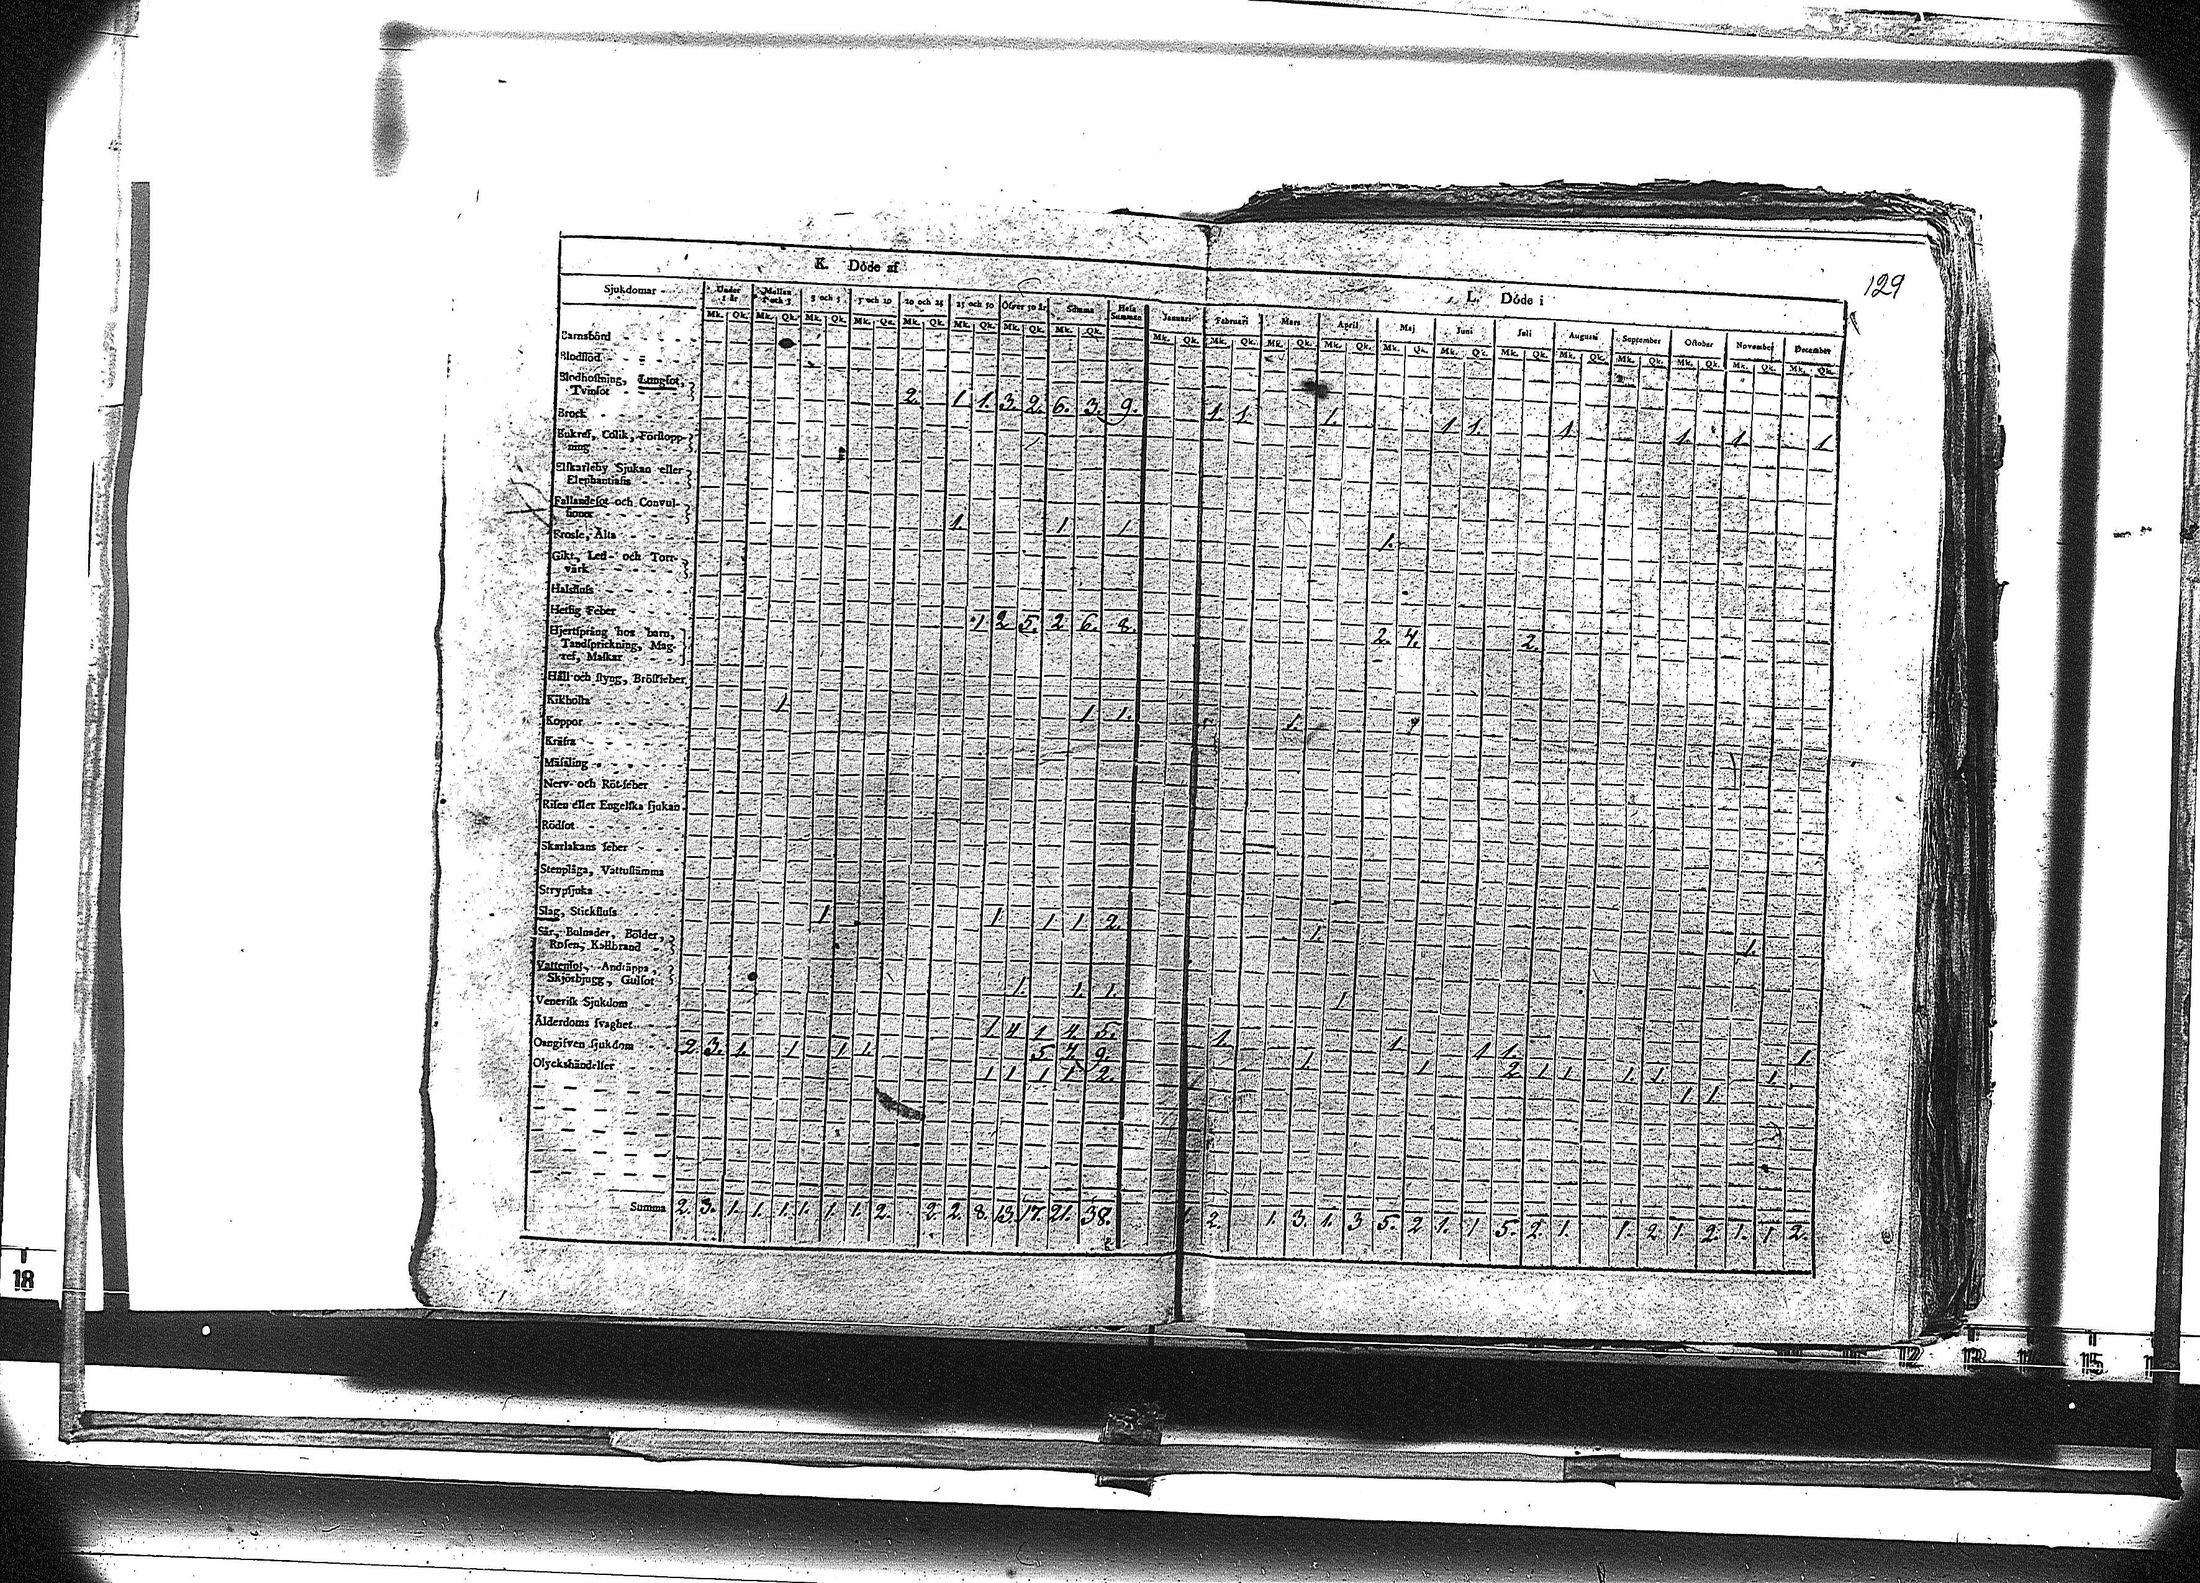 129
K. Döde af
L. Döde i
Sjukdomar
Under 1 år
Mellan 1 och 3
3 och 5
5 och 10
10 och 25
25 och 50
Öfver 50 år
Summa
Hela Summan
Januari Februari Mars April Maj Juni Juli Augusti September October November December
Mk. Qk. Mk. Qk. Mk. Qk. Mk. Qk. Mk. Qk. Mk. Qk. Mk. Qk. Mk. Qk.
Mk. Qk. Mk. Qk. Mk. Qk. Mk. Qk. Mk. Qk. Mk. Qk. Mk. Qk. Mk. Qk. Mk. Qk. Mk. Qk. Mk. Qk. Mk. Qk.
Barnsbörd
Blodflöd
Blodhostning, Lungsot,
Tvinsot 2. 1 1. 3. 2. 6. 3. 9. 1. 1. 1. 1 1. 1 1. 1. 1
Brock
Bukref, Colik, Förstopp-
ning
Elfkarleby Sjukan eller
Elephantiasis
Fallandesot och Convul-
sioner 1. 1 1. 1.
Frosse, Älta
Gikt, Led- och Torr-
värk
Halsfluss
Hetsig Feber 1 2 5. 2 6. 8. 2. 4. 2.
Hjertsprång hos barn,
Tandsprickning, Mag-
ref, Maskar
Håll och styng, Bröstfeber
Kikhosta 1 1 1. 1.
Koppor
Kräfta
Mässling
Nerv- och Rötfeber
Risen eller Engelska sjukan
Rödsot
Skarlakans feber
Stenplåga, Vattustämma
Strypsjuka
Slag, Stickfluss 1 1 1 1 2. 1. 1.
Sår, Bulnader, Bölder,
Rosen, Kallbrand
Vattensot, Andtäppa,
Skjörbjugg, Gulsot 1. 1. 1. 1
Venerisk Sjukdom
Ålderdoms svaghet 1 4 1 4. 5. 1. 1 1 1. 1.
Oangifven sjukdom 2. 3. 1. 1 1 1. 5 4 9. 1 1 2 1 1 1. 1. 1
Olyckshändelser 1 1 1 1 2. 1 1
Summa 2. 3. 1. 1. 1. 1. 1. 1. 2. 2. 2. 8. 13. 17. 21. 38. 1. 2. 1. 3. 1. 3 5. 2 1. 1 5. 2. 1. 1. 2. 1. 2. 1. 1 2.
18
12
13
15